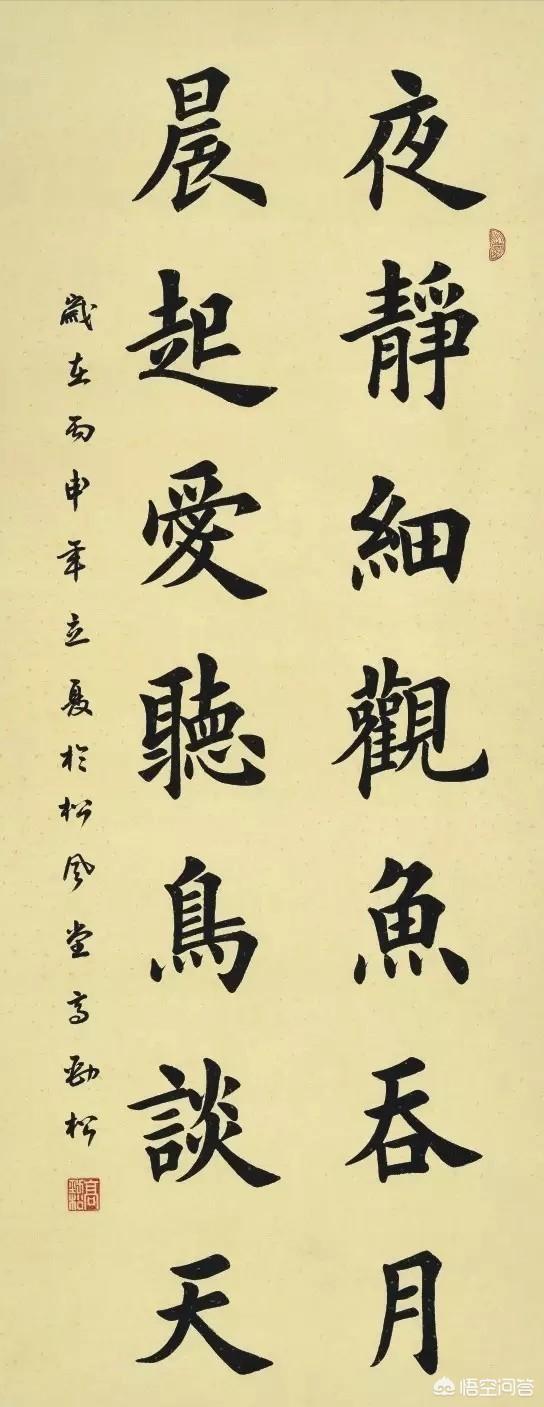 夜靜細觀魚吞月
晨起愛聽鳥談天
歲在丙申年立夏於松風堂高勁松
高勁松
悟空问答